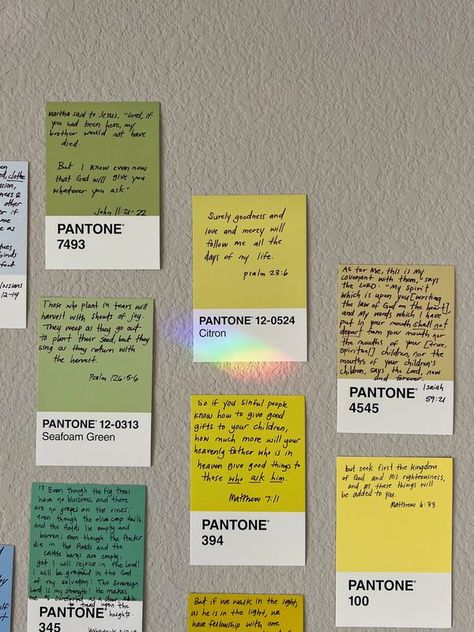 Martha said to Jesus, "Lord, if
you had been here, my
brother would not have
died.
But I know even now
that God will give you
whatever you ask"
John 11:21-22
PANTONE®
7493
Surely goodness and
love and mercy will
follow me all the
days of my life.
psalm 23:6
PANTONE® 12-0524
Citron
As for Me, this is My
covenant with them," says
the LORD: "My Spirit
which is upon you [writing
the law of God on the heart],
and My words which I have
put in your mouth shall not
depart from your mouth nor
the mouths of your [true,
spiritual] children, nor the
mouths of your children's
children, says the Lord, now
and forever."
Isaiah
59:21
PANTONE®
4545
Those who plant in tears will
harvest with shouts of joy.
They weep as they go out
to plant their seed, but they
sing as they return with
the harvest.
Psalm 126:5-6
PANTONE® 12-0313
Seafoam Green
So if you sinful people
know how to give good
gifts to your children,
how much more will your
heavenly father who is in
heaven give good things to
those who ask him.
Matthew 7:11
PANTONE®
394
but seek first the kingdom
of God and His righteousness,
and all these things will
be added to you.
Matthew 6:33
PANTONE®
100
17 Even though the fig trees
have no blossoms, and there
are no grapes on the vines;
even though the olive crop fails,
and the fields lie empty and
barren; even though the flocks
die in the fields and the
cattle barns are empty,
yet I will rejoice in the Lord!
I will be grateful in the God
of my salvation! The Sovereign
Lord is my strength! He makes
me as surefooted as a deer, able
to tread upon the
heights.
PANTONE®
345
But if we walk in the light,
as he is in the light, we
have fellowship with one
clothe
other
if
as
binds
12-14